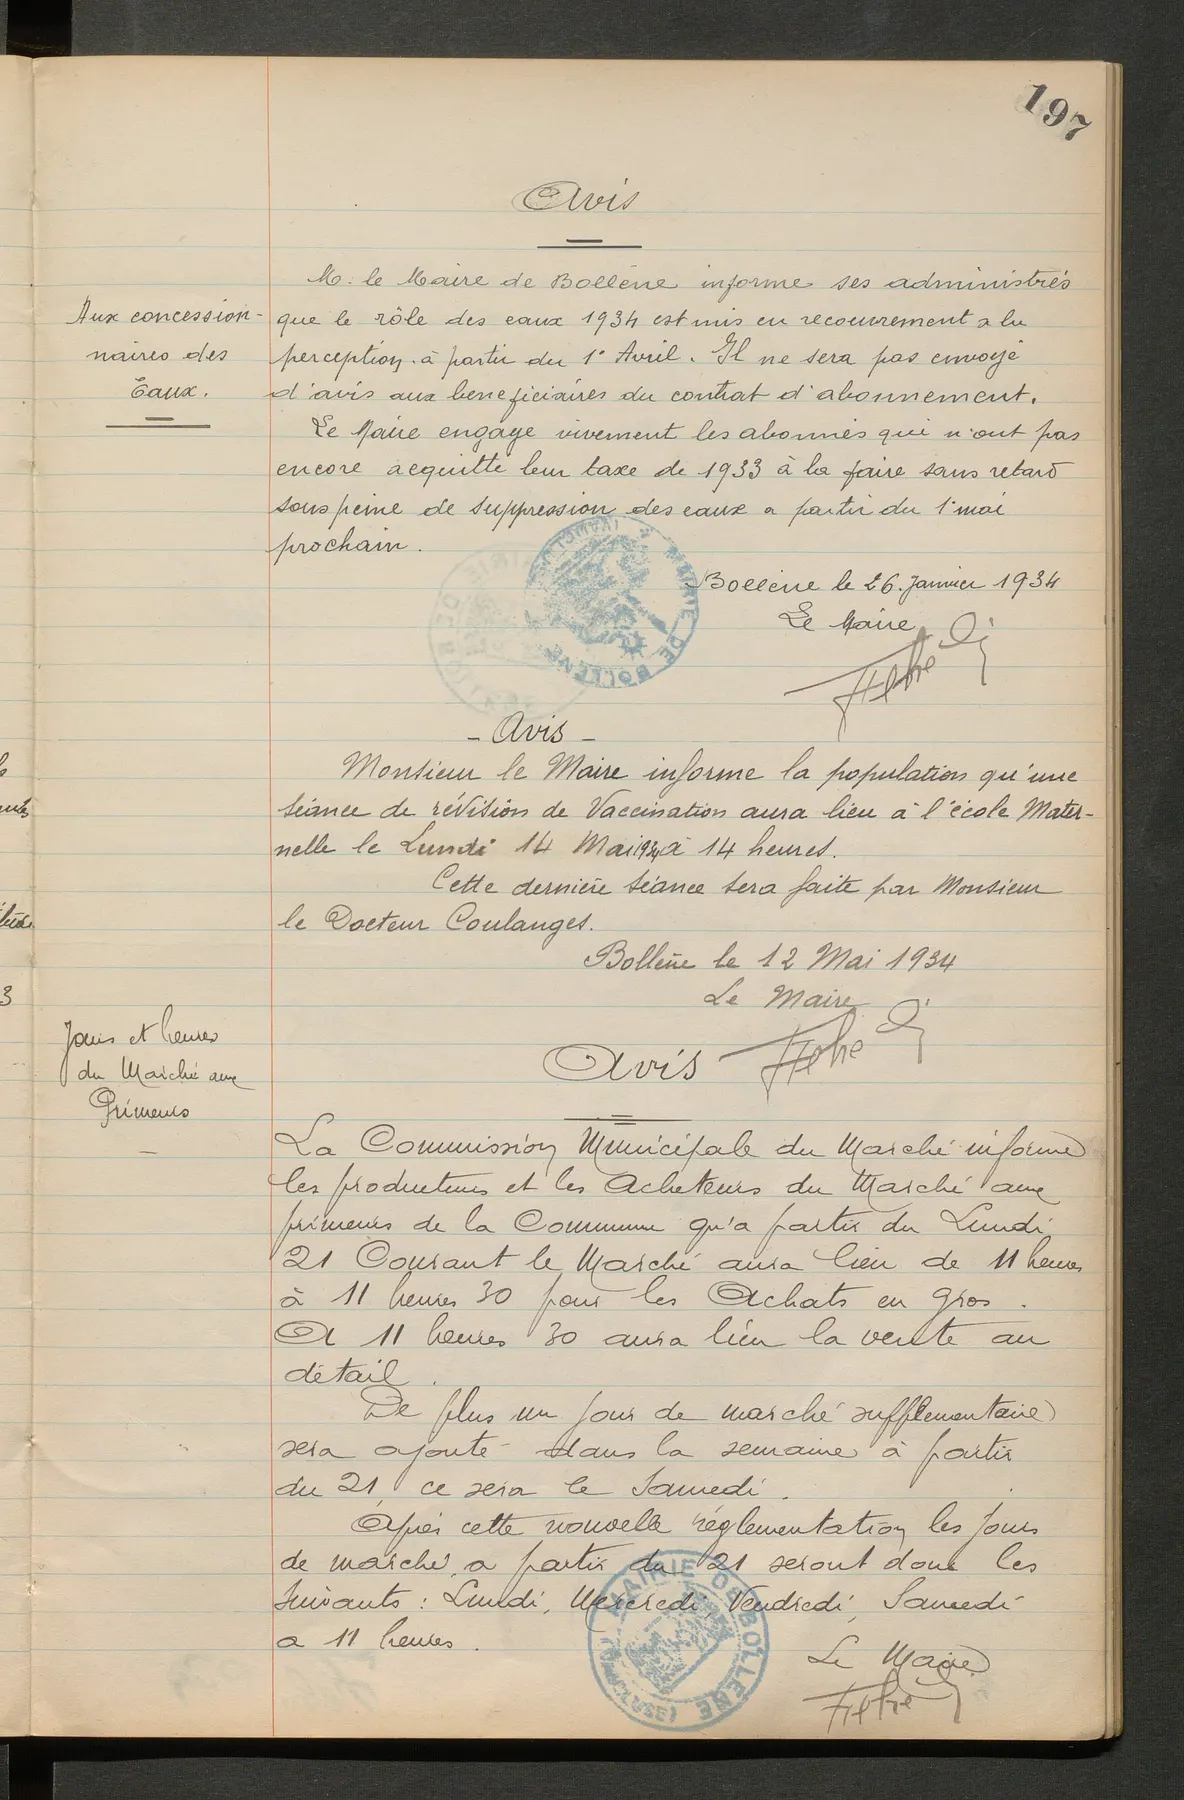 197
Avis
M. le Maire de Bollène informe ses administrés
Aux concession-
naires des
Eaux.
que le rôle des eaux 1934 est mis en recouvrement a la
perception à partir du 1° Avril. Il ne sera pas envoyé
d'avis aux beneficiaires du contrat d'abonnement.
Le Maire engage vivement les abonnés qui n'ont pas
encore acquitte leur taxe de 1933 à la faire sans retard
sous peine de suppression des eaux a partir du 1° mai
prochain.
MAIRIE DE BOLLÈNE (VAUCLUSE)
Bollène le 26 Janvier 1934
Le Maire
- Avis -
Monsieur le Maire informe la population qu'une
séance de révision de Vaccination aura lieu à l'école Mater-
nelle le Lundi 14 Mai 1934 à 14 heures.
Cette dernière séance sera faite par Monsieur
le Docteur Coulanges.
Bollène le 12 Mai 1934
Le Maire
Avis
Jours et heures
du Marché aux
Primeurs
La Commission Municipale du Marché informe
les producteurs et les Acheteurs du Marché aux
primeurs de la Commune qu'a partir du Lundi
21 Courant le Marché aura lieu de 11 heures
à 11 heures 30 pour les Achats en gros.
A 11 heures 30 aura lieu la vente au
détail.
De plus un jour de marché supplementaire
sera ajouté dans la semaine à partir
du 21, ce sera le Samedi.
Après cette nouvelle réglementation les jours
de marché, a partir du 21 seront donc les
suivants : Lundi, Mercredi, Vendredi, Samedi
a 11 heures.
MAIRIE DE BOLLÈNE (VAUCLUSE)
Le Maire